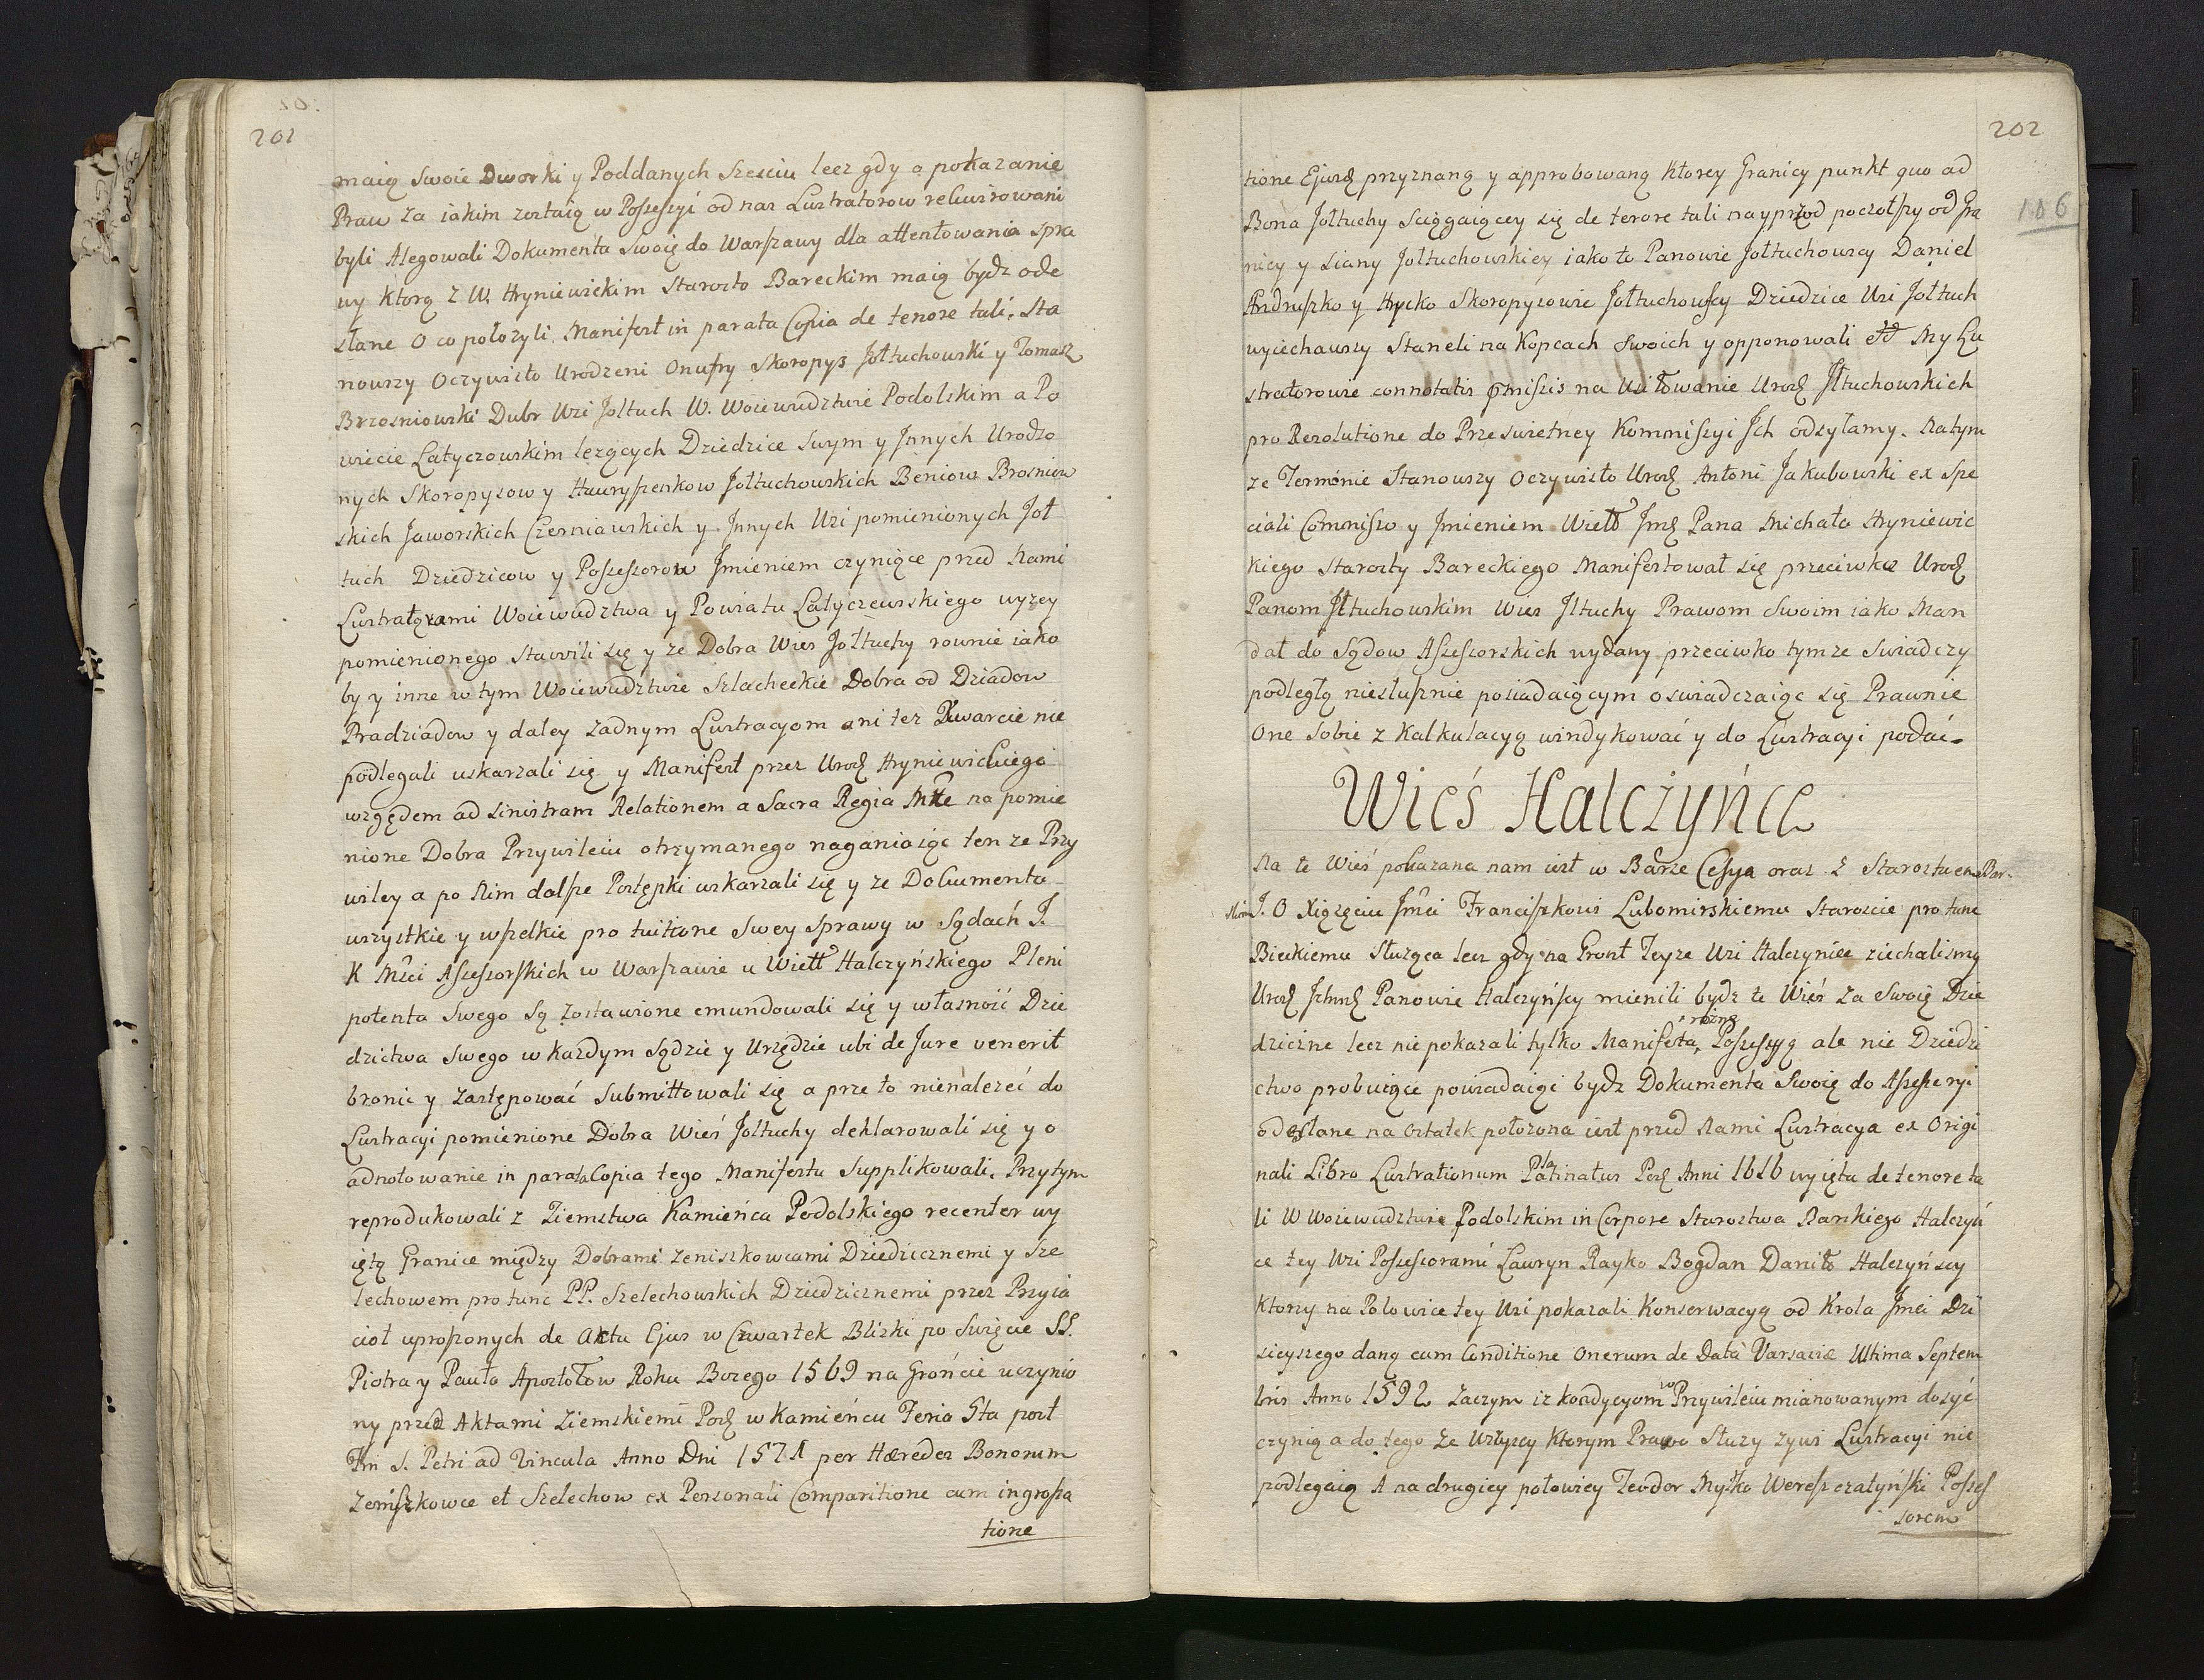 201
maią Swoie Dworki y Poddanych Sześciu lecz gdy o pokazanie
Praw za iakim zostaią w Possessyi od nas Lustratorow rekwirowani
byli Alegowali Dokumenta Swoię do Warszawy dla attentowania Spra
wy ktorą z W. Hryniewickim Starosto Bareckim maią bydz ode
słane O co położyli Manifest in parata Copia de tenore tali. Sta
nowszy Oczywisto Urodzeni Onufry Skoropys Jołtuchowski y Tomasz
Brzosniowski Dubr Wsi Jołtuch W. Woiewudztwie Podolskim a Po
wiecie Latyczowskim lezących Dziedzice Swym y Innych Urodzo
nych Skoropysow y Hawryszenkow Jołtuchowskich Beniow Brosniow
skich Jaworskich Czerniawskich y Innych Wsi pomienionych Joł
tuch Dziedzicow y Possessorow Imieniem czyniące przed Nami
Lustratorami Woiewudztwa y Powiatu Latyczewskiego wyzey
pomienionego Stawili się y ze Dobra Wies Jołtuchy rownie iako
by y inne w tym Woiewudztwie Szlacheckie Dobra od Dziadow
Pradziadow y daley zadnym Lustracyom ani tez Kwarcie nie
podlegali uskarzali się y Manifest przez Urodz Hryniewickiego
wzgędem ad Sinistram Relationem a Sacra Regia Mtte na pomie
nione Dobra Przywileiu otrzymanego naganiaiąc ten ze Przy
wiley a po Nim dalsze Postępki uskarzali się y ze Dokumenta
wszystkie y wszelkie pro tuitione Swey Sprawy w Sądach J.
K Msci Assessorskich w Warszawie u Wielł Halczyńskiego Pleni
potenta Swego Są zostawione emundowali się y własność Dzie
dzictwa Swego w kazdym Sądzie y Urzędzie ubi de Jure venerit
bronic y zastępować Submittowali się a prze to nienalezeć do
Lustracyi pomienione Dobra Wieś Jołtuchy deklarowali się y o
adnotowanie in parata Copia tego Manifestu Supplikowali. Przytym
reprodukowali z Ziemstwa Kamieńca Podolskiego recenter wy
iętą Granice między Dobrami Zeniszkowcami Dziedzicznemi y Sze
lechowem pro tunc PP. Szelechowskich Dziedzicznemi przez Przyia
cioł uproszonych de Aktu Ejus w Czwartek Blizki po Swięcie SS.
Piotra y Pauła Aposztołow Roku Bozego 1569 na Grońcie uczynio
ny przed Aktami Ziemskiemi Podz w Kamieńcu Feria 5ta post
Fm S. Petri ad Vincula Anno Dni 1571 per Hæredes Bonorum
Zeniszkowce et Szelechow ex Personali Comparitione cum ingrossa
tione
202
106
tione Ejusd przyznaną y approbowaną Ktorey Granicy punkt quo ad
Bona Jołtuchy Sciągaiącey się de tenore tali nayprzod poczołszy od Gra
nicy y Sciany Jołtuchowskiey iako to Panowie Jołtuchowscy Daniel
Andruszko y Hrycko Skoropysowie Jołtuchowscy Dziedzice Wsi Jołtuch
wyiechawszy Staneli na Kopcach Swoich y opponowali etc My Lu
stratorowie connotatis pmissis na Usiłowanie Urodz Jłtuchowskich
pro Resolutione do Przeswietney Kommissyi Ich odsyłamy. Natym
ze Terminie Stanowszy Oczywisto Urodz Antoni Jakubowski ex Spe
ciali Commisso y Imieniem Wielł Jmc Pana Michała Hryniewic
kiego Starosty Bareckiego Manifestował się przeciwko Urodz
Panom Jłtuchowskim Wies Jłtuchy Prawom Swoim iako Man
dat do Sądow Assessorskich wydany przeciwko tym ze Swiadczy
podległą niesłusznie posiadaiącym oswiadczaiąc się Prawnie
One Sobie z Kalkulacyą windykować y do Lustracyi podać.
Wieś Halczyńce
Na te Wieś pokazana nam iest w Barze Cessya oraz z Starostwem Bar-
skim J. O Xiązęciu Jmci Franciszkowi Lubomirskiemu Staroscie pro tunc
Bieckiemu Słuząca lecz gdy na Gront Teyze Wsi Halczynice ziechalismy
Urodz Ichmć Panowie Halczyńscy mienili bydz te Wieś za Swoię Dzie
dziczne lecz nie pokazali tylko Manifesta, rozne Possessyą ale nie Dziedzi
ctwo probuiące powiadaiąc bydz Dokumenta Swoię do Assessoryi
odesłane na Ostatek położona iest przed Nami Lustracya ex Origi
nali Libro Lustrationum Pałatinatus Podz Anni 1616 wyięta de tenore ta
li W Woiewudztwie Podolskim in Corpore Starostwa Barskiego Halczyń
ce tey Wsi Possessorami Lawryn Rayko Bogdan Daniło Halczyńscy
Ktorzy na Połowice tey Wsi pokazali Konserwacyą od Krola Jmci Dzi
sieyszego daną cum Conditione Onerum de Data Varsaviæ Ultima Septem
bris Anno 1592 Zaczym iz kondycyom w Przywileiu mianowanym dosyć
czynią a do tego ze Wszyscy Ktorym Prawo Słuzy zywi Lustracyi nie
podlegaią A na drugiey połowicy Teodor Myłko Wereszczatyński Posses
sorem